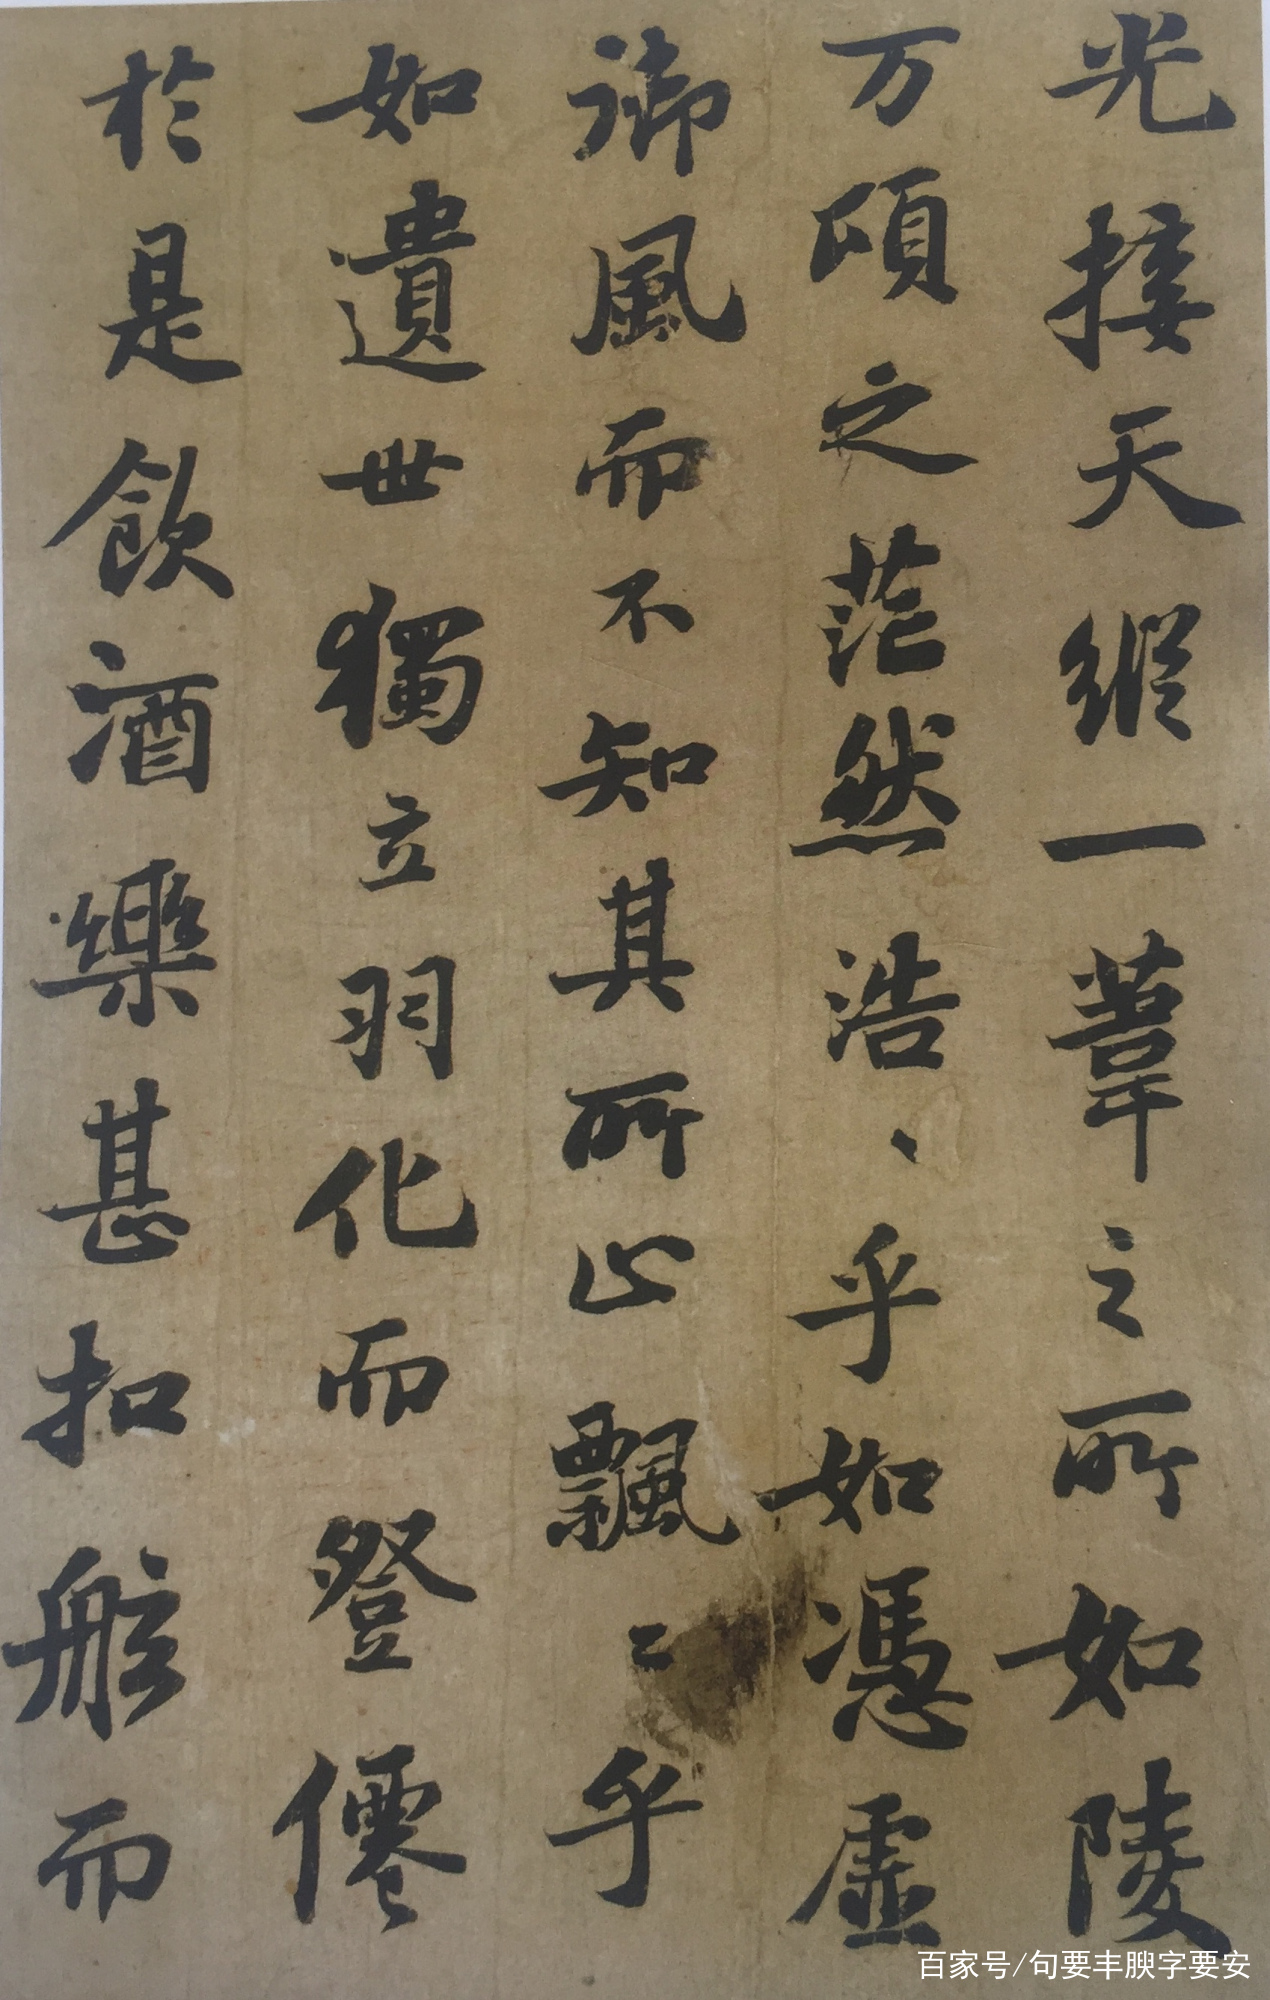 光接天縱一葦之所如陵
万頃之茫然浩、乎如憑虛
御風而不知其所止飄〻乎
如遺世獨立羽化而登僊
於是飲酒樂甚扣舷而
百家号/句要丰腴字要安